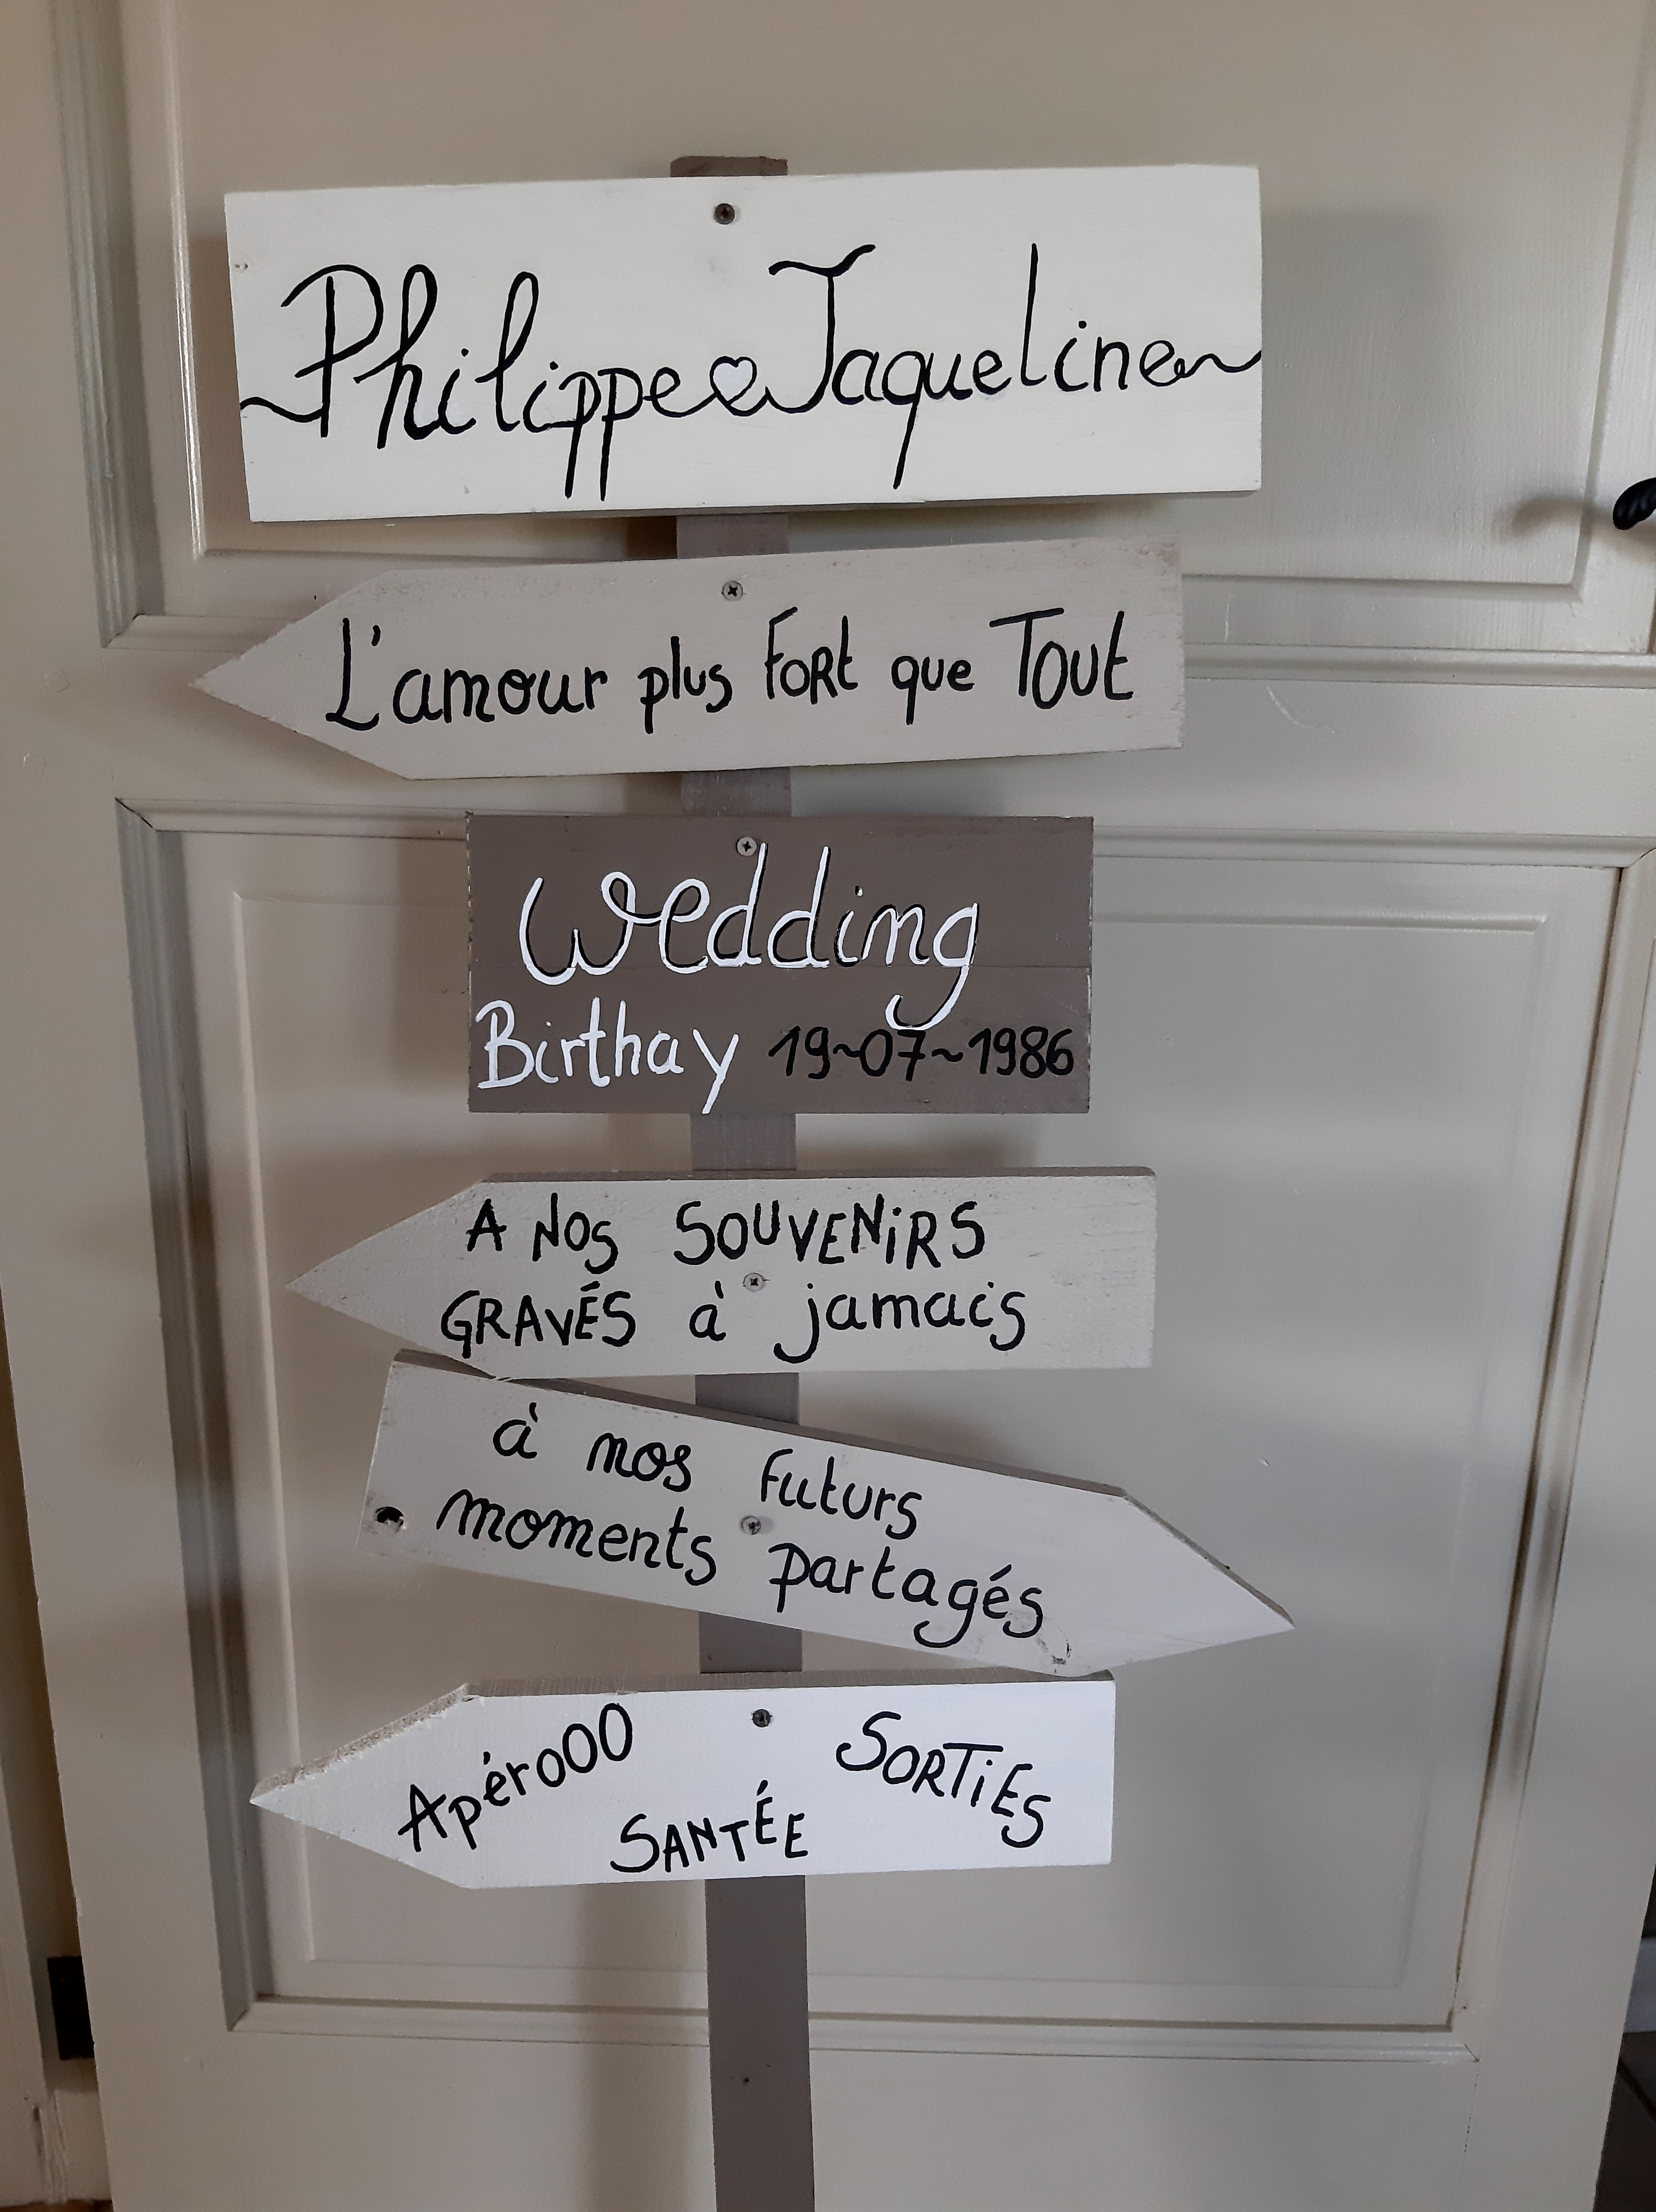 Philippe Jaqueline
L'amour plus fort que Tout
Wedding
Birthay 19~07~1986
A Nos SOUVENIRS
GRAVÉS à jamais
à nos futurs
moments partagés
Apérooo SORTiES
SANTÉE